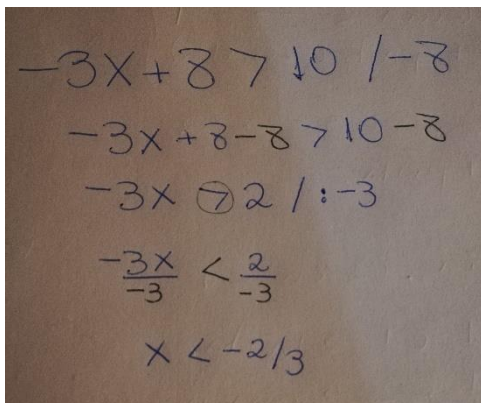 -3x+8 > 10 /-8
-3x+8-8 > 10-8
-3x > 2 / :-3
-3x/-3 < 2/-3
x < -2/3